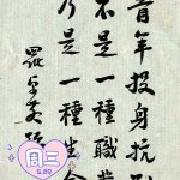 青年投身抗
不是一種職業
乃是一種生命
羅卓英
周三